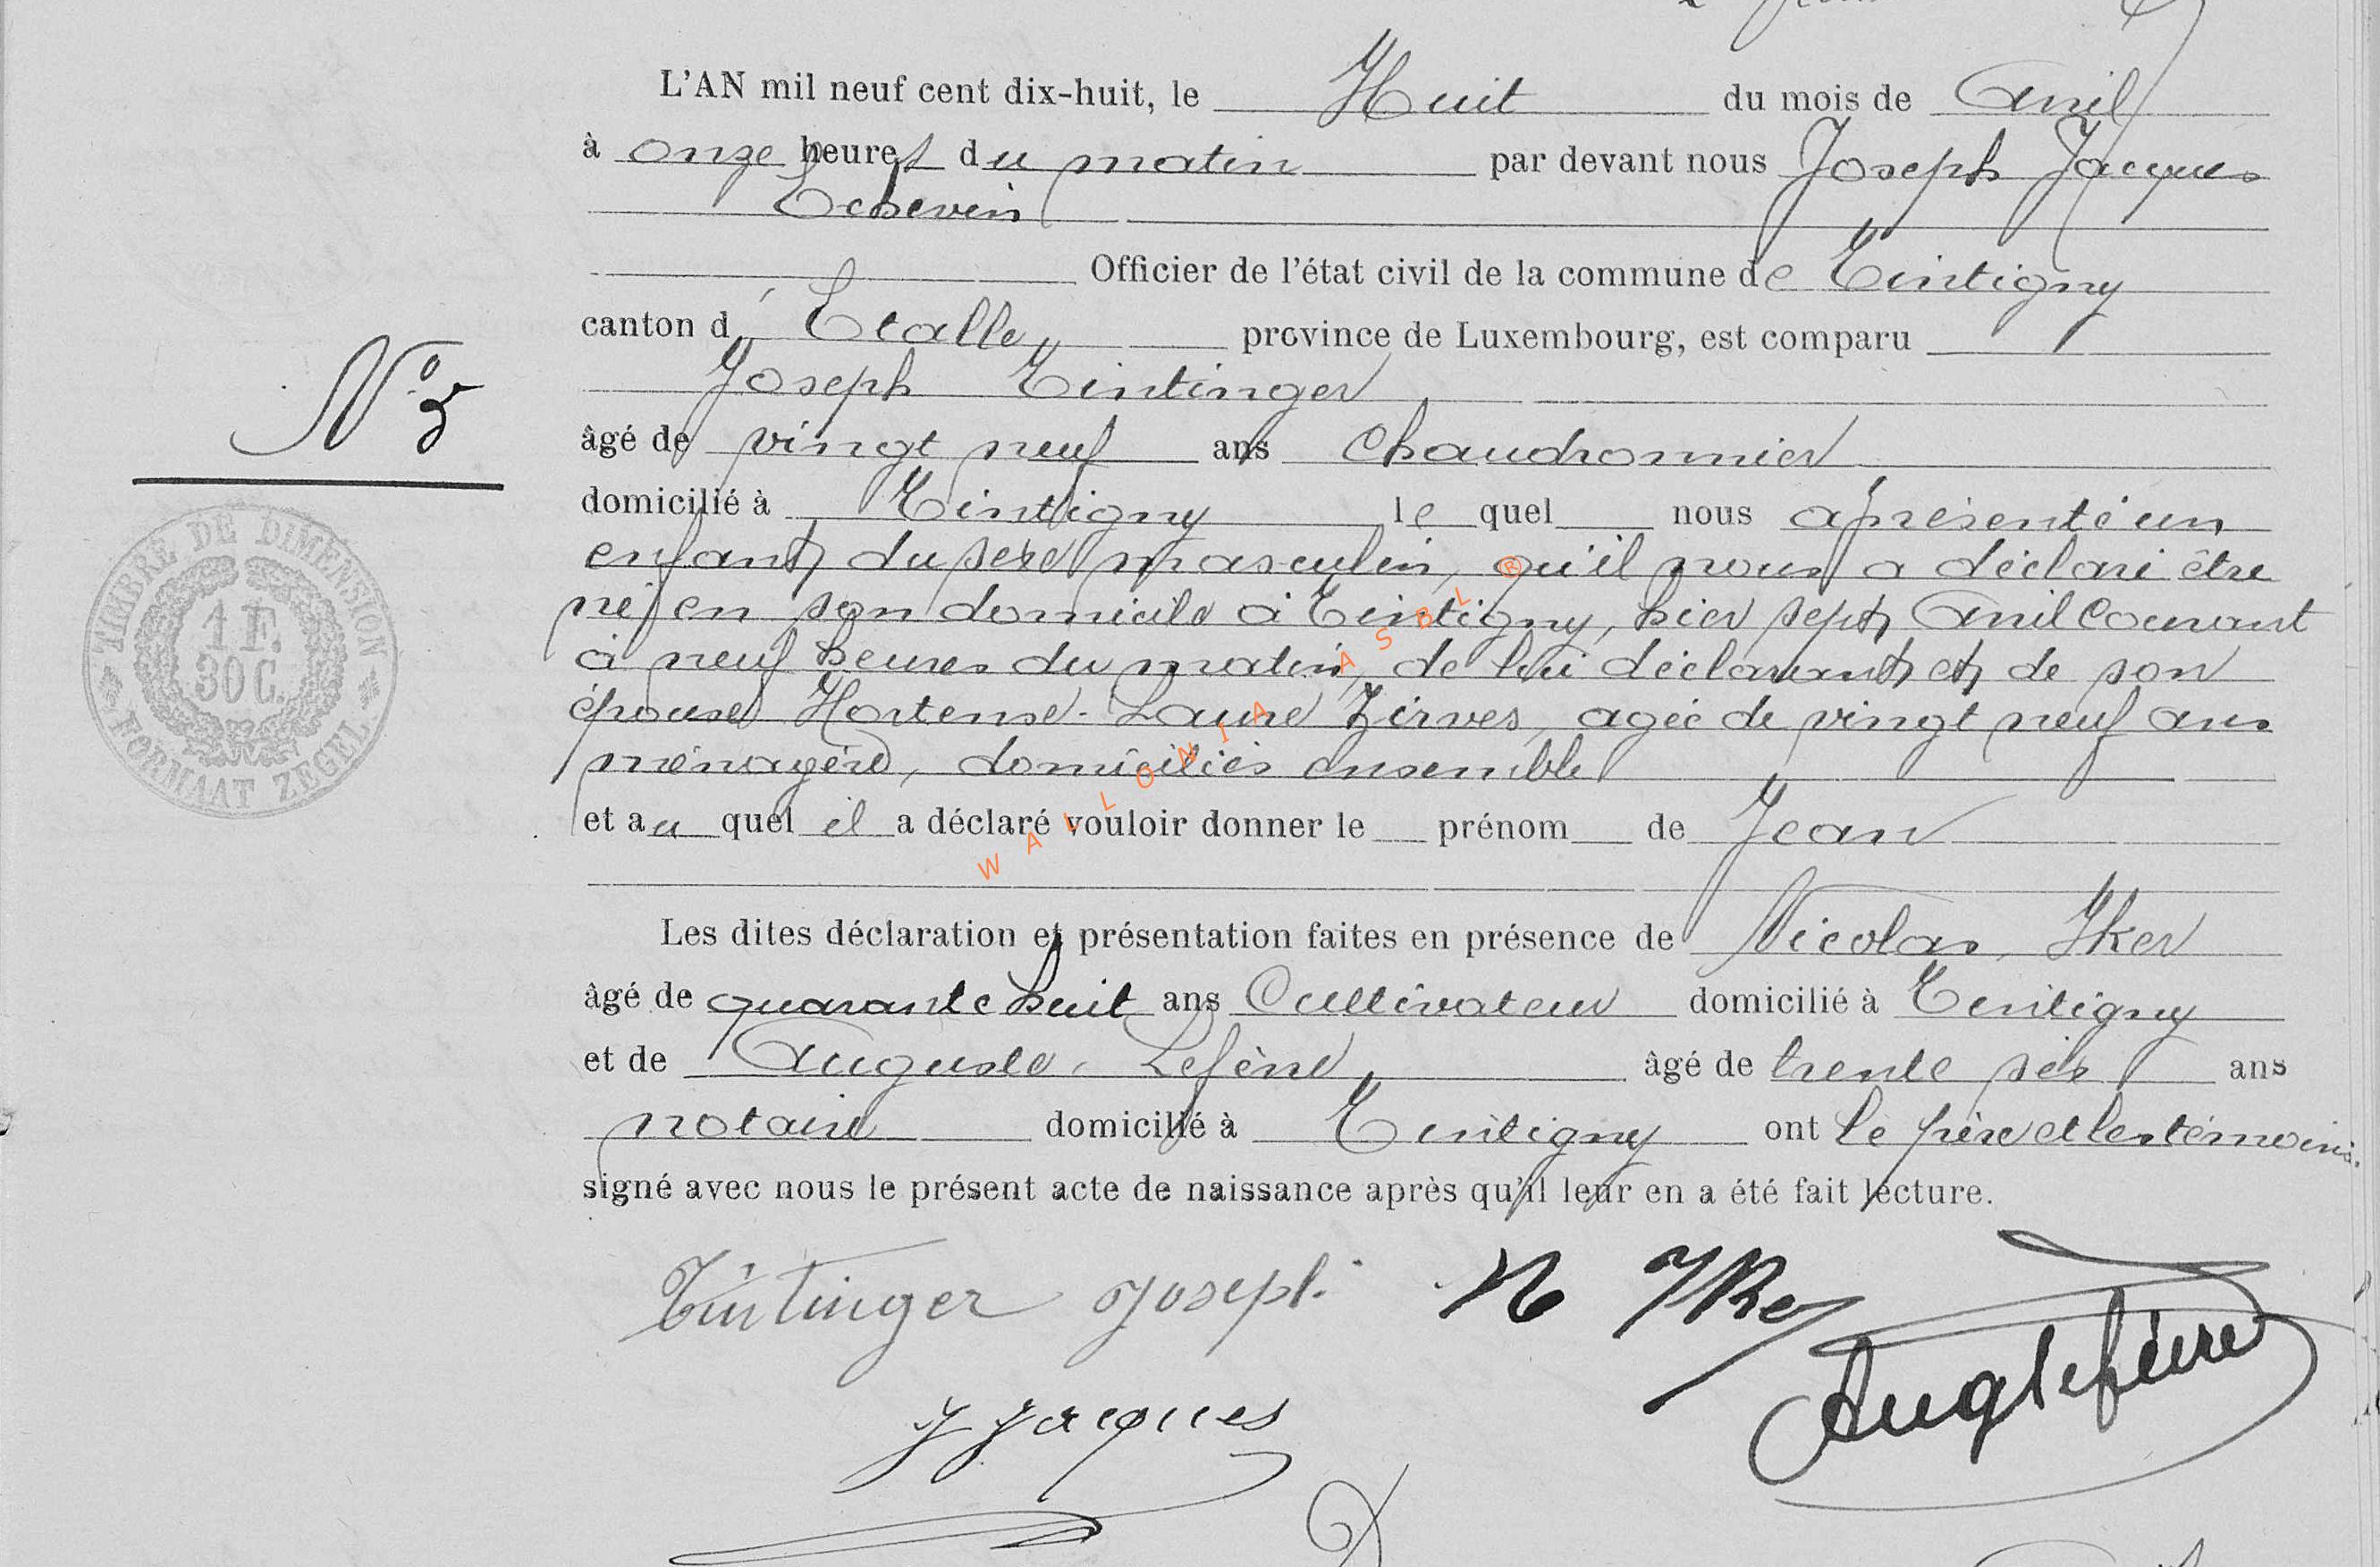 L'AN mil neuf cent dix-huit, le Huit du mois de Avril
à onze heures du matin par devant nous Joseph Jacques
Echevin
Officier de l'état civil de la commune de Tintigny
canton d'Etalle province de Luxembourg, est comparu
Joseph Tintinger
N° 5
âgé de vingt neuf ans Chaudronnier
domicilié à Tintigny le quel nous a présenté un
enfant du sexe masculin, qu'il nous a déclaré être
né en son domicile à Tintigny, hier sept Avril Courant
à neuf heures du matin, de lui déclarant et de son
épouse Hortense-Laure Zirves, agée de vingt neuf ans
ménagère, domiciliés ensemble
TIMBRE DE DIMENSION
1 F.
30 C.
FORMAAT ZEGEL
et au quel il a déclaré vouloir donner le prénom de Jean
WALLONIA ASBL ®
Les dites déclaration et présentation faites en présence de Nicolas Iker
âgé de quarante huit ans Cultivateur domicilié à Tintigny
et de Auguste Lefèvre âgé de trente six ans
notaire domicilié à Tintigny ont le père et les témoins
signé avec nous le présent acte de naissance après qu'il leur en a été fait lecture.
Tintinger Joseph N Iker
Aug Lefèvre
J Jacques